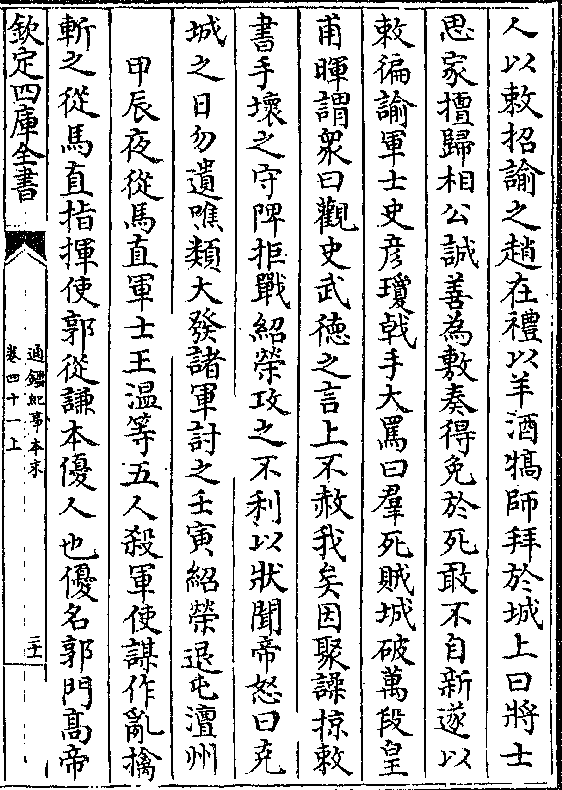 人以敕招諭之趙在禮以羊酒犒師拜於城上曰將士
思家擅歸相公誠善為敷奏得免於死敢不自新遂以
敕徧諭軍士史彥瓊戟手大罵曰羣死賊城破萬段皇
甫暉謂衆曰觀史武德之言上不赦我矣因聚譟掠敕
書手壞之守陴拒戰紹榮攻之不利以狀聞帝怒曰克
城之日勿遺噍類大發諸軍討之壬寅紹榮退屯澶州
甲辰夜從馬直軍士王温等五人殺軍使謀作亂擒
斬之從馬直指揮使郭從謙本優人也優名郭門髙帝
欽定四庫全書
通鑑紀事本末
卷四十一上
二十